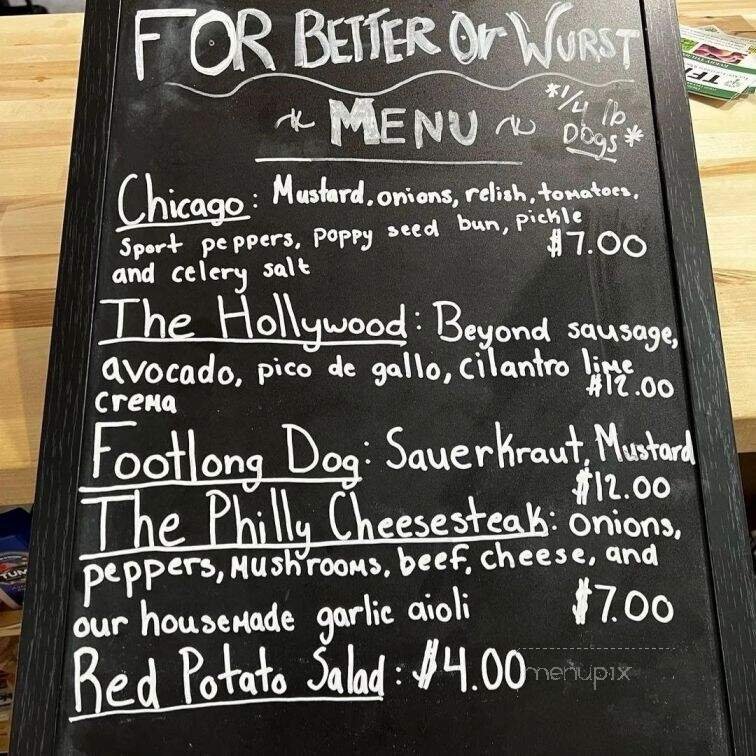 FOR BETTER Or WURST
MENU
*1/4 lb
Dogs*
Chicago: Mustard, onions, relish, tomatoes,
Sport peppers, poppy seed bun, pickle
and celery salt $7.00
The Hollywood: Beyond sausage,
avocado, pico de gallo, cilantro lime
crema $12.00
Footlong Dog: Sauerkraut, Mustard
$12.00
The Philly Cheesesteak: onions,
peppers, mushrooms, beef, cheese, and
our housemade garlic aioli $7.00
Red Potato Salad: $4.00
menupix